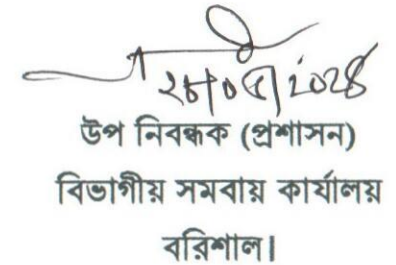 ২৮/০৫/২০২৪
উপ নিবন্ধক (প্রশাসন)
বিভাগীয় সমবায় কার্যালয়
বরিশাল।